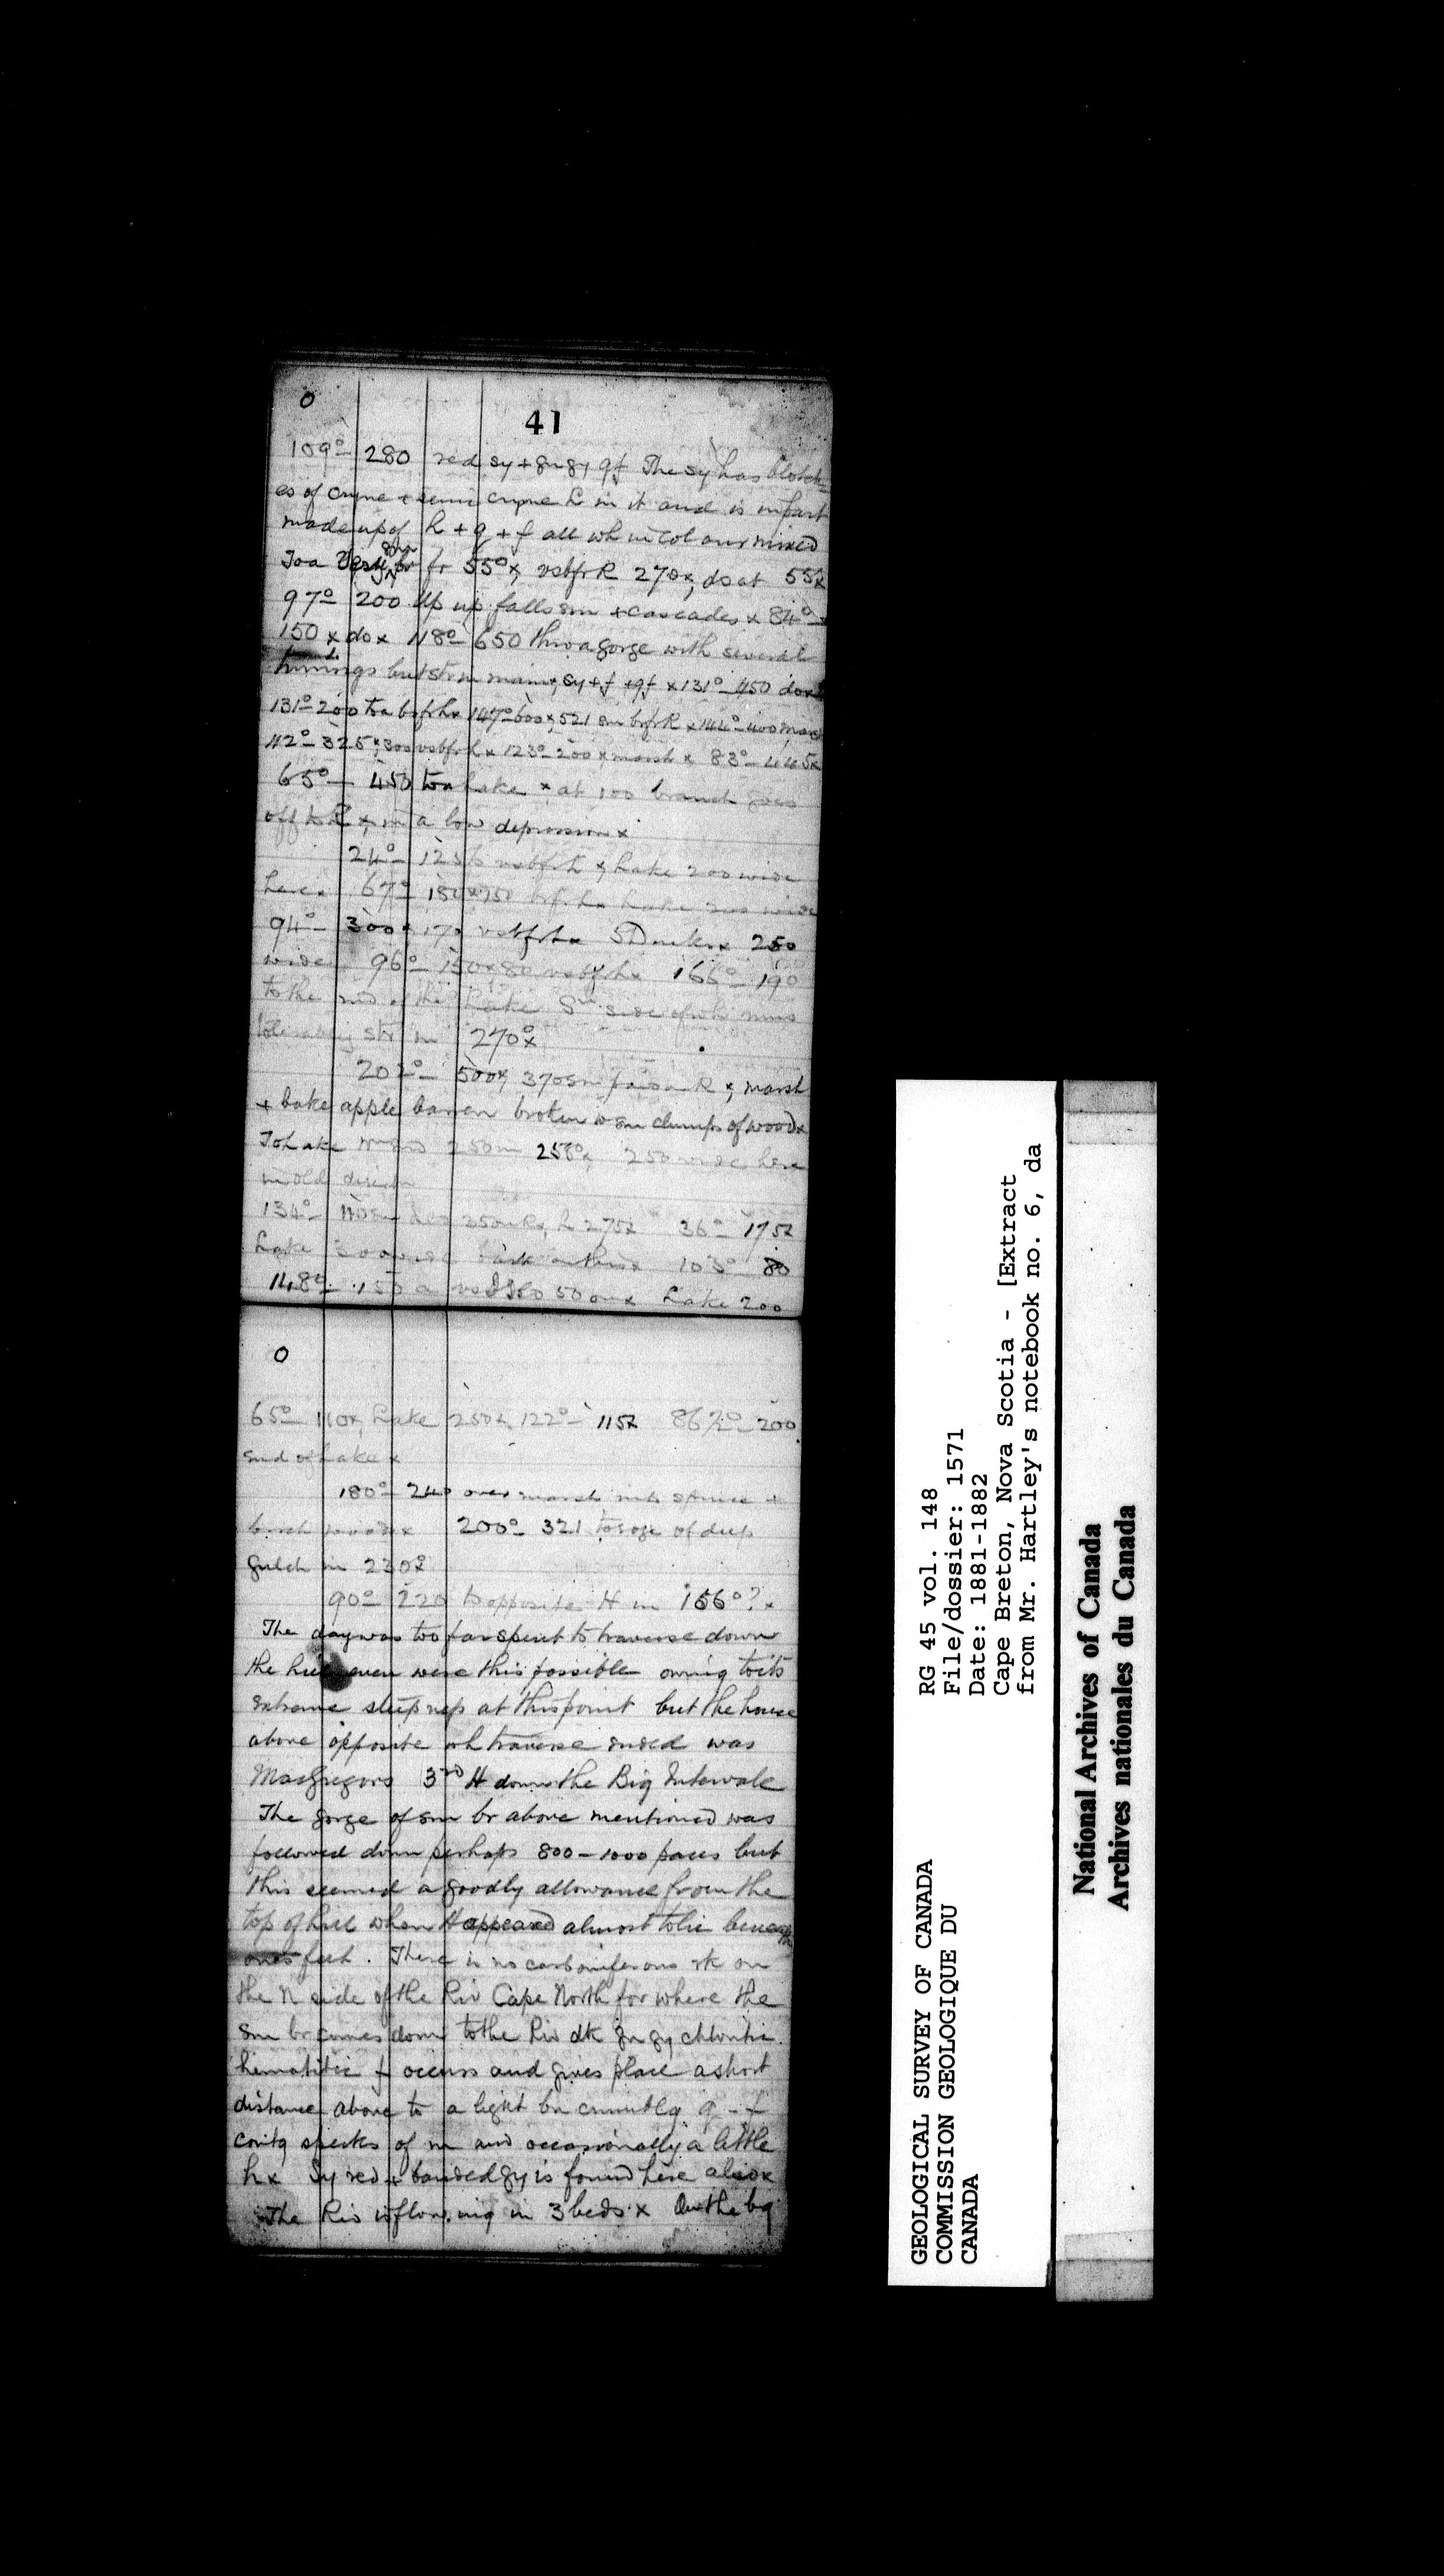 0
41
109° 280 red sy + gn gy qf The sy has blotch-
es of cryne + semi cryne h in it and is in fact
made up of h + q + f all wh in colour mixed
To a sm br fr 55° x, vsbfr R 270x, do at 55x
97° 200 up falls sm + cascades x 84°
150 x do x 118° 650 thro a gorge with several
turnings but str in main, sy + f + qf x 131° 450 do x
131° 200 to a bfrh x 147° 600x, 521 sm brfr R x 144° 400 marsh
112° 325x, 300 vsbfrh x 123° 200 x marsh x 83° 445x
65° 450 to a Lake x at 100 branch goes
off to R x, in a low depression x
24° 125 vsbfrh x, Lake 200 wide
here x 67° 150 x 750 brfrh x Lake 200 wide
94° 300 x 170 vsbfrh x 5 Ducks x 250
wide 96° 150 x 80 vsbfrh x 166° 190
to the end of the Lake Sn side of wh runs
tolerably str in 270° x
202° 500x, 370 sm R x, marsh
+ bake apple barren broken w sm clumps of wood x
To Lake 250 in 258° x, 250 wide here
in old direction
134° 110 250 R x, h 275x 26° 175x
Lake 300 wide x 103° 80
148° 150 a 50 on x Lake 200
0
65° 110x, Lake 250x, 122° 115x 86½° 200
End of Lake x
180° 240 over marsh into spruce +
birch woods x 200° 321 to edge of deep
gulch in 230?
90° 220 to opposite H in 156°? x
The day was too far spent to traverse down
the hill even were this possible owing to its
extreme steepness at this point but the house
above opposite wh traverse ended was
MacGregors 3rd H down the Big Intervale
The gorge of sm br above mentioned was
followed down perhaps 800 - 1000 paces but
this seemed a goodly allowance from the
top of hill when H appeared almost to lie beneath
ones feet. There is no carboniferous rk on
the N side of the Riv Cape North for where the
sm br comes down to the Riv dk gn gy chloritic
hematitic f occurs and gives place a short
distance above to a light bn crumblg q-f
contg specks of m and occasionally a little
h x Sy red + banded gy is found here also x
The Riv is flowing in 3 beds x On the bg
GEOLOGICAL SURVEY OF CANADA
COMMISSION GEOLOGIQUE DU
CANADA
RG 45 vol. 148
File/dossier: 1571
Date: 1881-1882
Cape Breton, Nova Scotia - [Extract
from Mr. Hartley's notebook no. 6, da
National Archives of Canada
Archives nationales du Canada